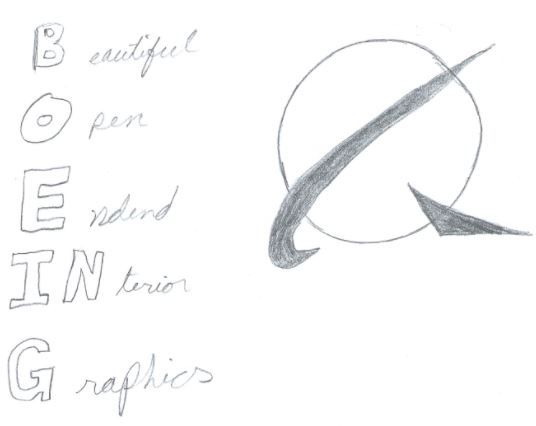 Beautiful
Open
Endend
INterior
Graphics